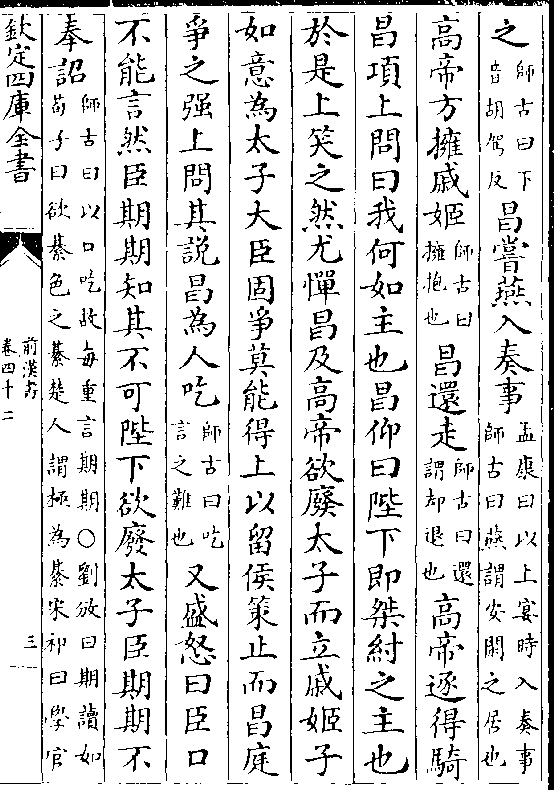 之師古曰下音胡駕反昌嘗燕入奏事孟康曰以上宴時入奏事師古曰燕謂安閑之居也
高帝方擁戚姬師古曰擁抱也昌還走師古曰還謂却退也高帝逐得騎
昌項上問曰我何如主也昌仰曰陛下即桀紂之主也
於是上笑之然尤憚昌及高帝欲廢太子而立戚姬子
如意為太子大臣固爭莫能得上以留侯策止而昌庭
爭之强上問其說昌為人吃師古曰吃言之難也又盛怒曰臣口
不能言然臣期期知其不可陛下欲廢太子臣期期不
奉詔師古曰以口吃故每重言期期○劉攽曰期讀如荀子曰欲綦色之綦楚人謂極為綦宋祁曰學官
欽定四庫全書
前漢書
卷四十二
三